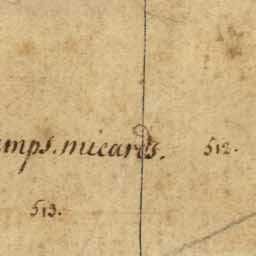 amps. micards. 512.
513.